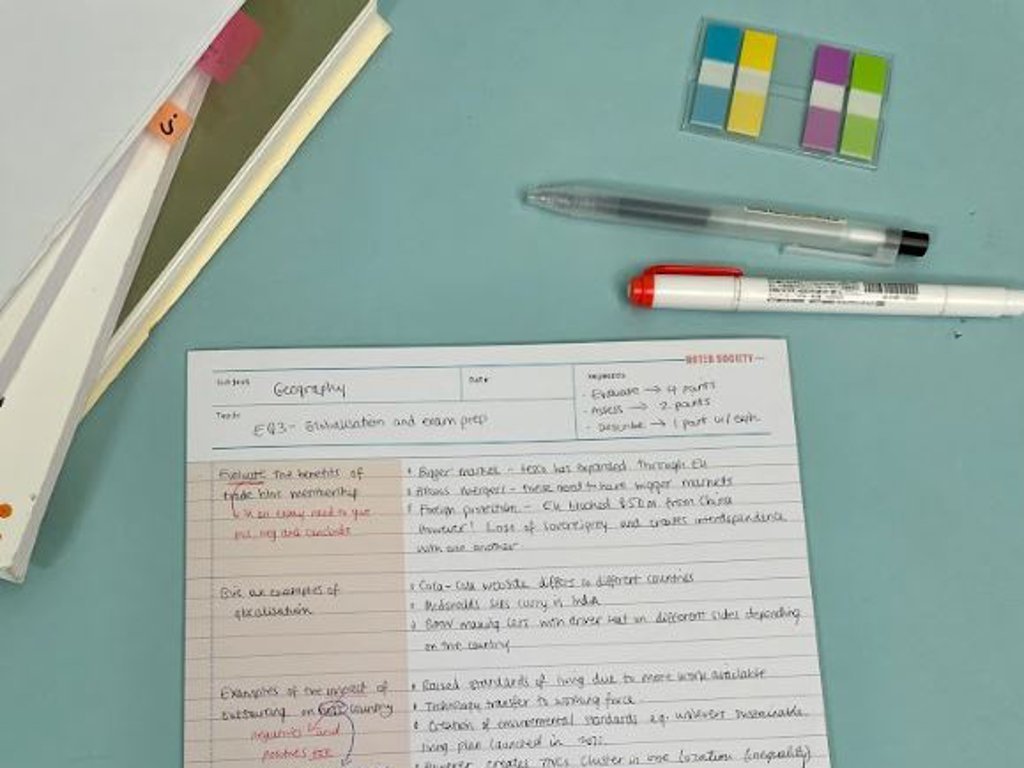 NOTED SOCIETY
Subject
Geography
Date
Keywords
- Evaluate → 4 parts
- Assess → 2 parts
- Describe → 1 part w/
Topic
EQ3- Globalisation and exam prep
Evaluate the benefits of
trade bloc membership
↳ in an essay need to give
pos, neg and conclude
• Bigger market - tesco has expanded through EU
• Allows mergers - these need to have bigger markets
• Foreign protection - EU blocked from China
However! Loss of sovereignty and creates interdependence
with one another
Give an examples of
glocalisation
• Coca-Cola website differs in different countries
• McDonalds sells curry in India
• BMW making cars with driver seat on different sides depending
on the country
Examples of the impact of
outsourcing on country
negatives and
positives
• Raised standards of living due to more work available
• Technology transfer to working force
• Creation of environmental standards e.g. unilever sustainable
living plan launched in
• However creates TNCs cluster in one location (inequality)